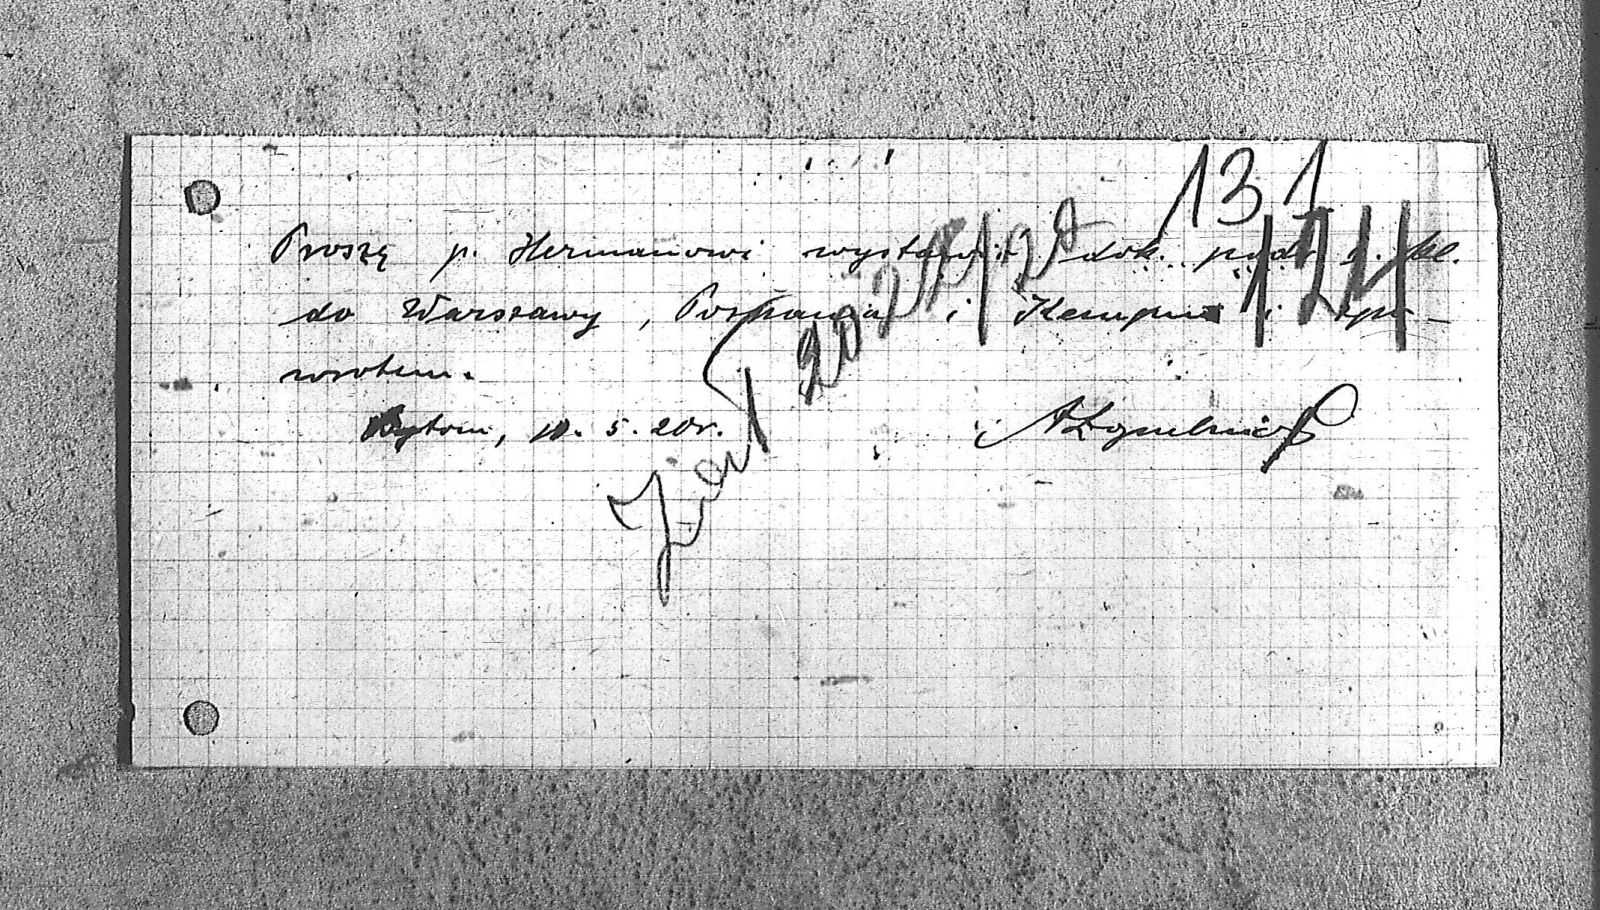 131
124
Proszę p. Hermanowi wystawić dok. podr. kl.
do Warszawy, Poznania i Kempna i spo-
wrotem.
Bytom, 10. 5. 20r.